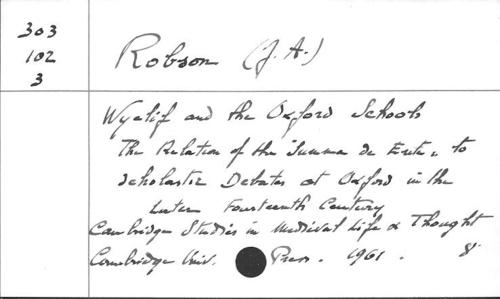 303
102
3
Robson (J. A.)
Wyclif and the Oxford Schools
The Relation of the "Summa de Ente" to
Scholastic Debates at Oxford in the
Later Fourteenth Century
Cambridge Studies in Medieval Life & Thought
Cambridge Univ. Press. 1961. 8°